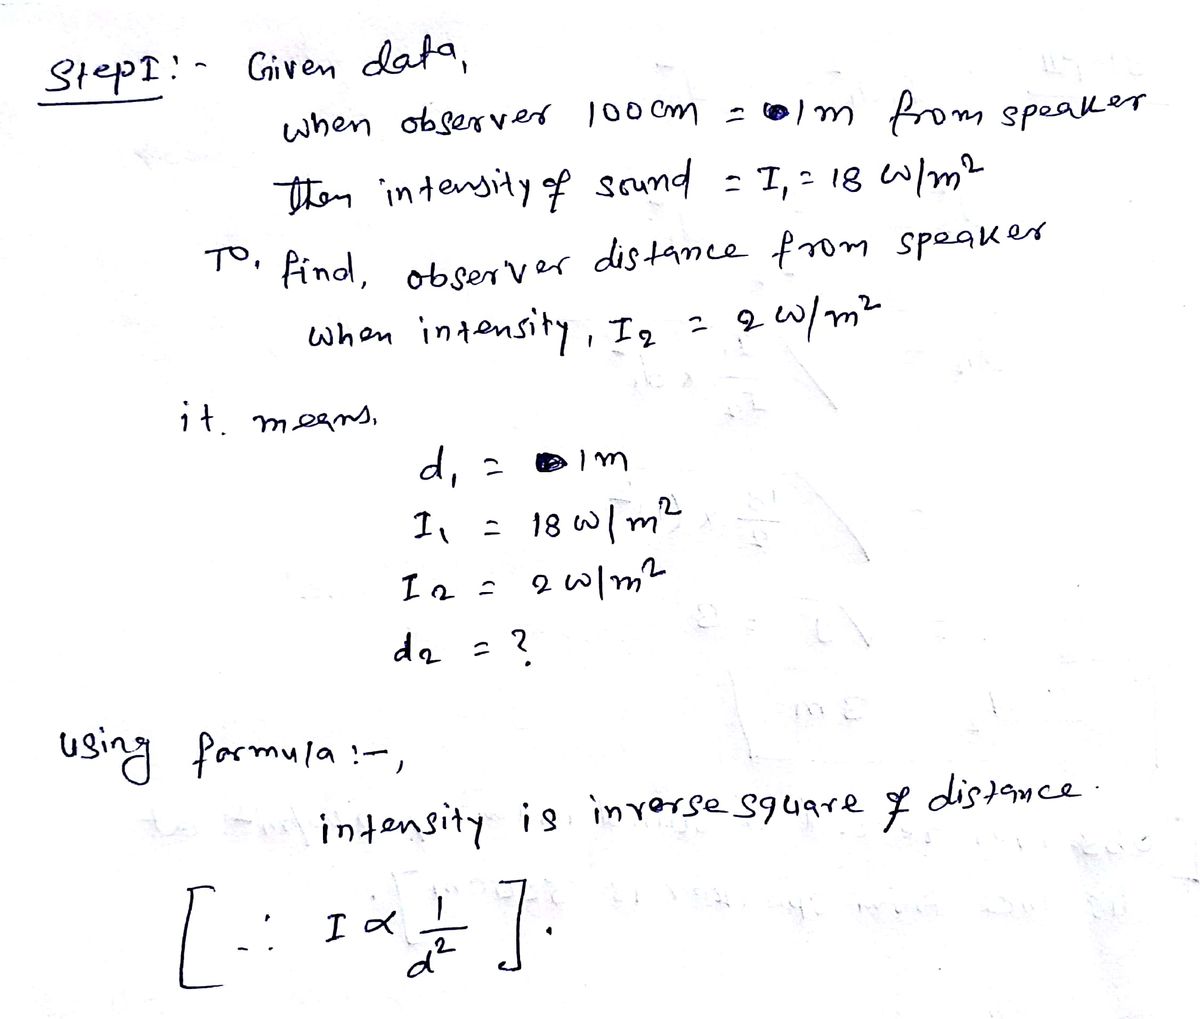 Step I :- Given data,
when observer 100 cm = 1 m from speaker
then intensity of sound = I₁ = 18 W/m²
To, find, observer distance from speaker
when intensity, I₂ = 2 W/m²
it. means,
d₁ = 1 m
I₁ = 18 W/m²
I₂ = 2 W/m²
d₂ = ?
using formula :-,
intensity is inverse square of distance.
[ ∴ I ∝ 1/d² ].